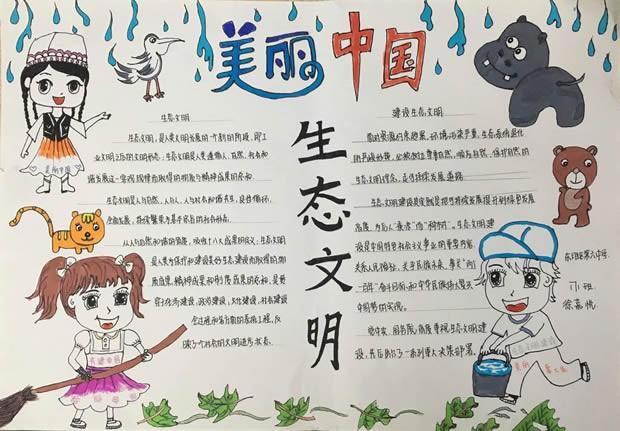 美丽中国
生态文明
生态文明
生态文明，是人类文明发展的一个新的阶段，即工
业文明之后的文明形态；生态文明是人类遵循人、自然、社会和
谐发展这一客观规律而取得的物质与精神成果的总和。
生态文明是人与自然、人与人、人与社会和谐共生、良性循环、
全面发展、持续繁荣为基本宗旨的社会形态。
从人与自然和谐的角度，吸收十八大成果的定义：生态文明
是人类为保护和建设美好生态环境而取得的物
质成果、精神成果和制度成果的总和，是贯
穿于经济建设、政治建设、文化建设、社会建设
全过程和各方面的系统工程，反
映了一个社会的文明进步状态。
建设生态文明
面对资源约束趋紧、环境污染严重、生态系统退化
的严峻形势，必须树立尊重自然、顺应自然、保护自然的
生态文明理念，走可持续发展道路
生态文明建设其实就是把可持续发展提升到绿色发展
高度，为后人"乘凉"而"种树"。生态文明建
设是中国特色社会主义事业的重要内容，
关系人民福祉，关乎民族未来，事关"两个
一百年"奋斗目标和中华民族伟大复兴
中国梦的实现。
党中央、国务院高度重视生态文明建
设，先后出台了一系列重大决策部署。